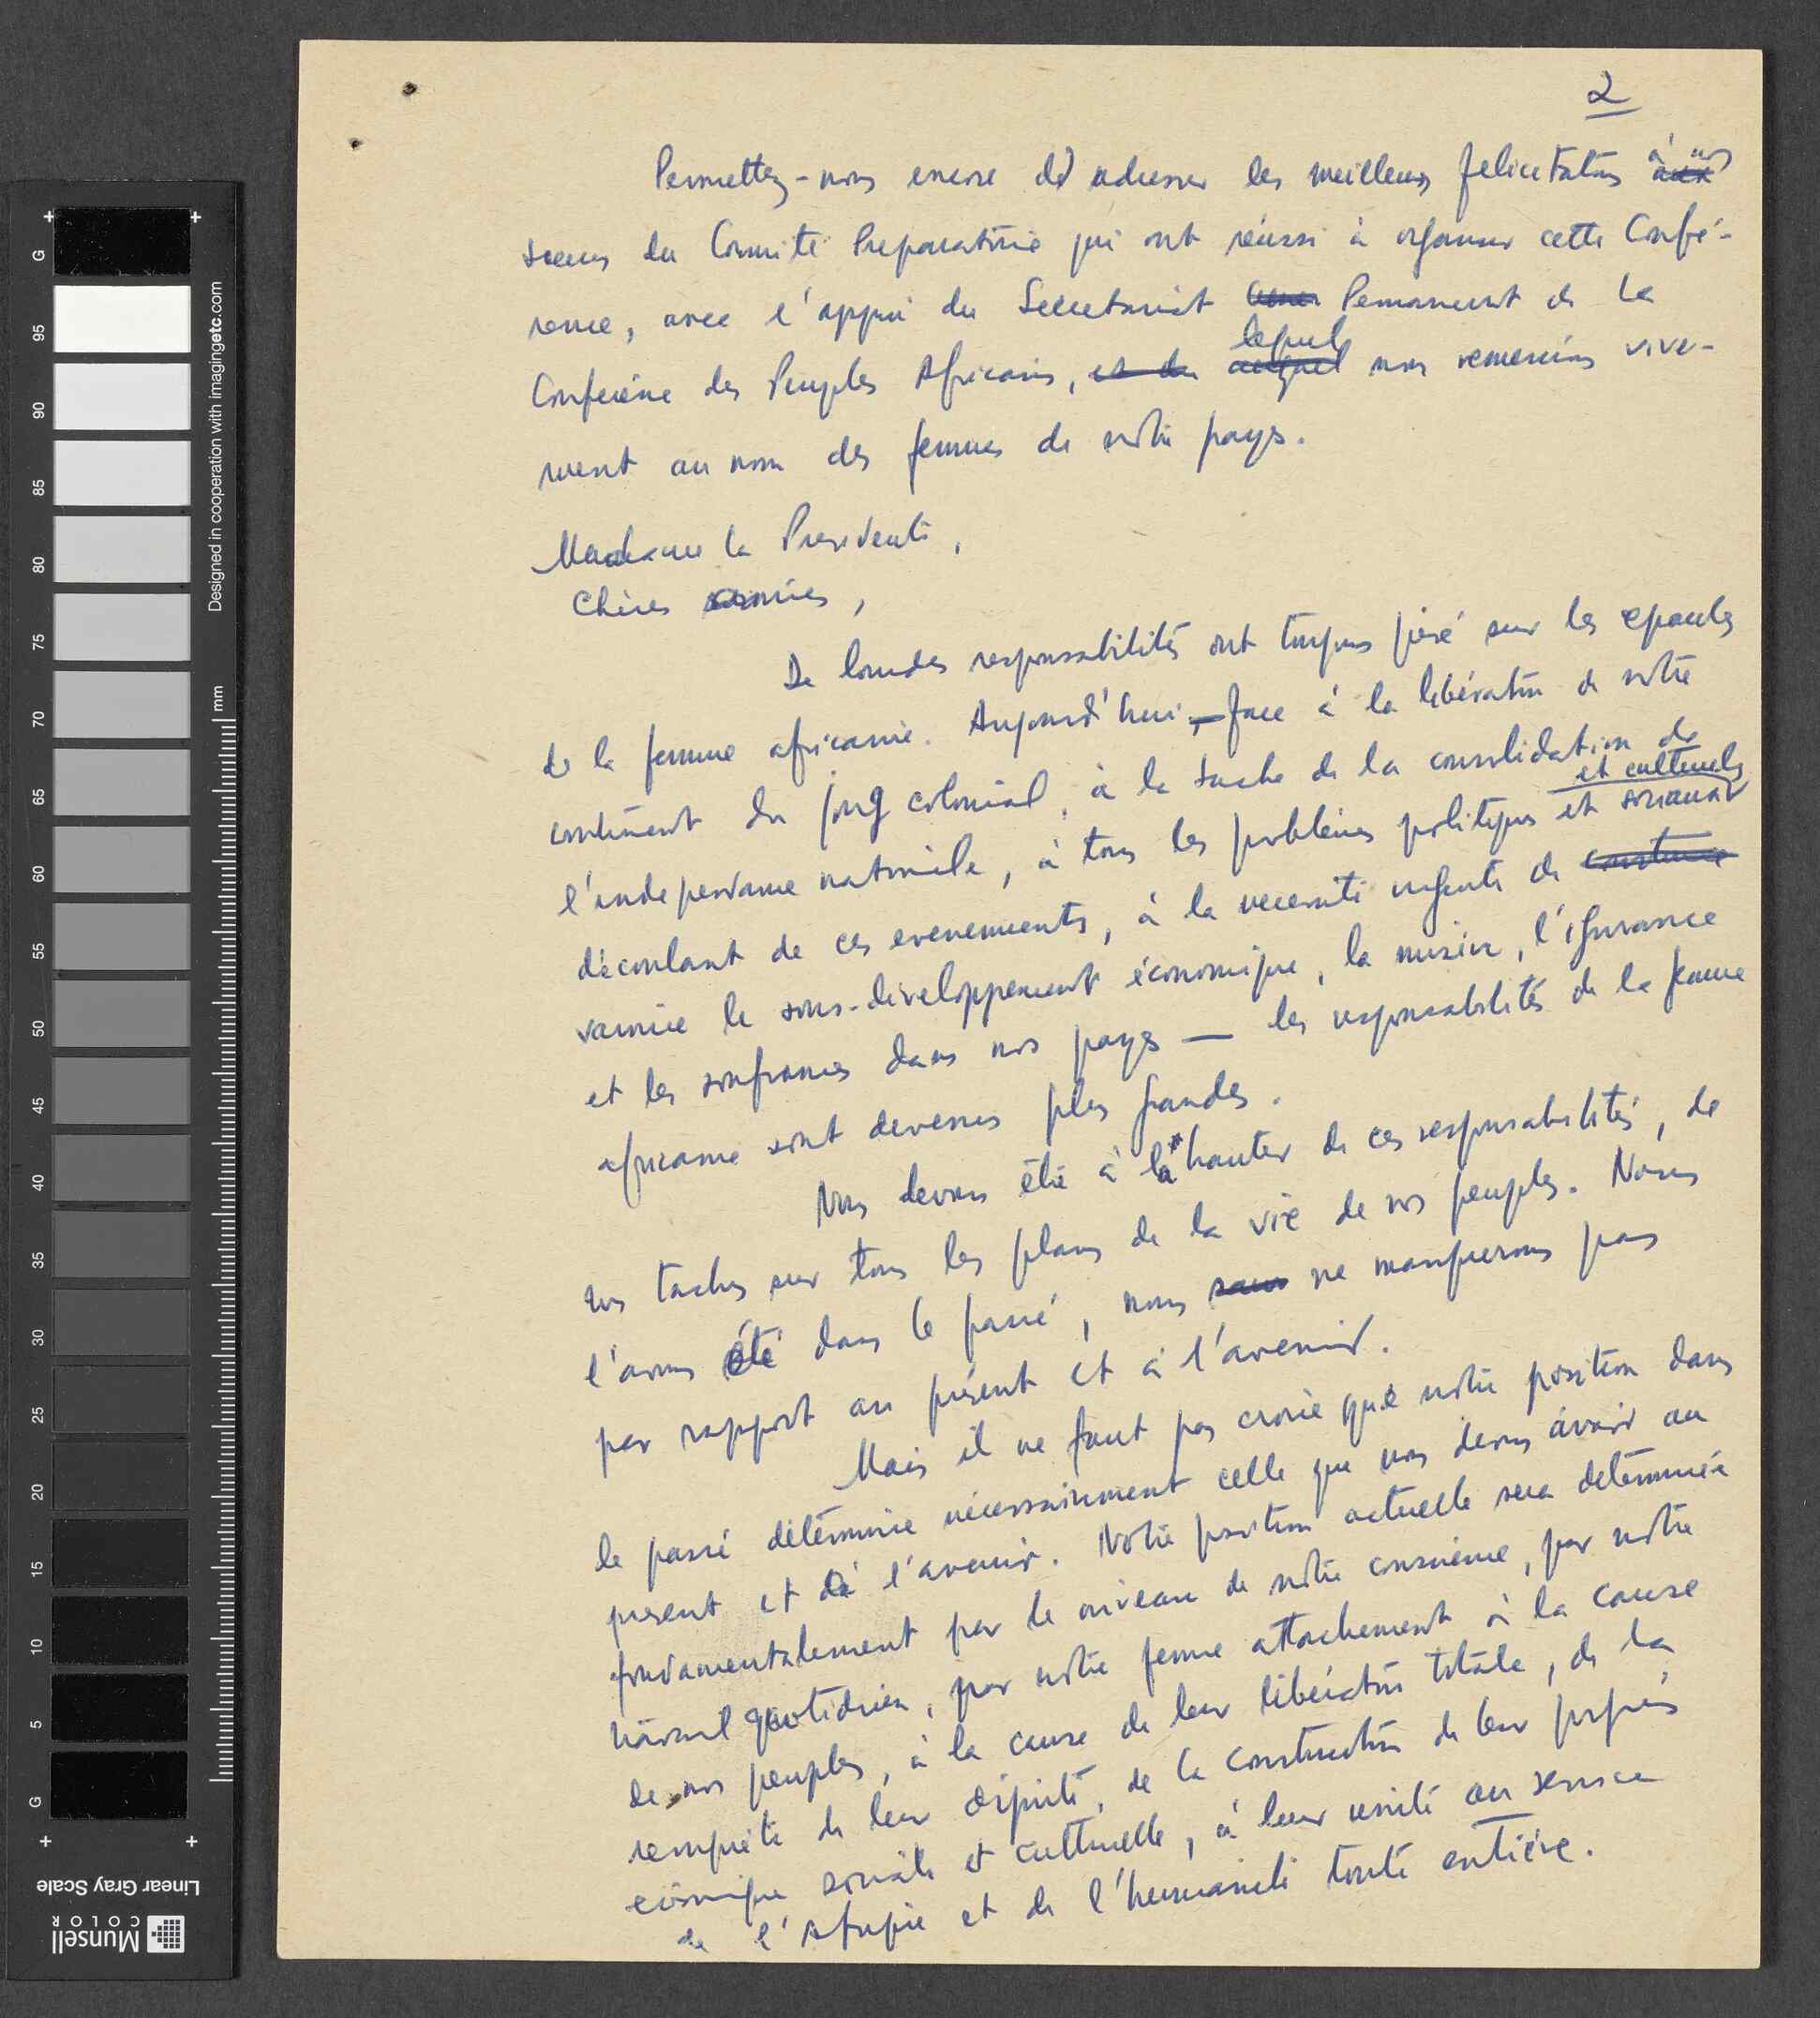 2
Permettez-nous encore d'adresser les meilleurs felicitations à nos
soeurs du Comité Preparatoire qui ont réussi à organiser cette Confé-
rence, avec l'appui du Secretariat Permanent de la
Conference des Peuples Africains, lequel nous remercions vive-
ment au nom des femmes de notre pays.
Madame la Presidente,
Chères amies,
De lourdes responsabilités ont toujours pesé sur les epaules
de la femme africaine. Aujourd'hui, — face à la libération de notre
continent du joug colonial, à la tache de la consolidation de
l'independance nationale, à tous les problèmes politiques et sociaux et culturels
découlant de ces evenements, à la necessité urgente de
vaincre le sous-développement économique, la misère, l'ignorance
et les souffrances dans nos pays — les responsabilités de la femme
africaine sont devenues plus grandes.
Nous devons être à la hauter de ces responsabilités, de
nos taches sur tous les plans de la vie de nos peuples. Nous
l'avons été dans le passé, nous ne manquerons pas
par rapport au présent et à l'avenir.
Mais il ne faut pas croire que notre position dans
le passé détermine nécessairement celle que nous devons avoir au
present et à l'avenir. Notre position actuelle sera determinée
fondamentalement par le niveau de notre conscience, par notre
travail quotidien, par notre ferme attachement à la cause
de nos peuples, à la cause de leur libération totale, de la
reconquête de leur dignité, de la construction de leur progrès
economique sociale et culturelle, à leur unité au service
de l'Afrique et de l'humanité toute entière.
G
95
90
85
80
75
70
65
60
55
50
45
40
35
30
25
20
15
10
5
G
mm
Designed in cooperation with imagingetc.com
Linear Gray Scale
Munsell
COLOR